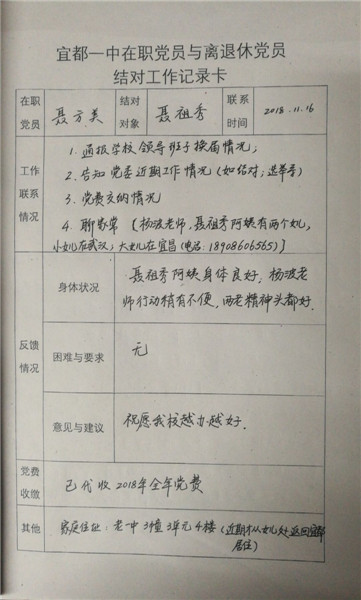 宜都一中在职党员与离退休党员
结对工作记录卡
在职党员 聂方美 结对对象 聂祖秀 联系时间 2018.11.16
工作联系情况
1. 通报学校领导班子换届情况;
2. 告知党委近期工作情况(如结对;选举等)
3. 党费交纳情况
4. 聊家常 (杨波老师,聂祖秀阿姨有两个女儿,
小女儿在武汉;大女儿在宜昌(电话:18908606565))
反馈情况
身体状况
聂祖秀阿姨身体良好,杨波老
师行动稍有不便,两老精神头都好.
困难与要求
无
意见与建议
祝愿我校越办越好.
党费收缴
已代收2018年全年党费
其他
家庭住址:老一中3幢3单元4楼(近期才从女儿处返回宜都
居住)